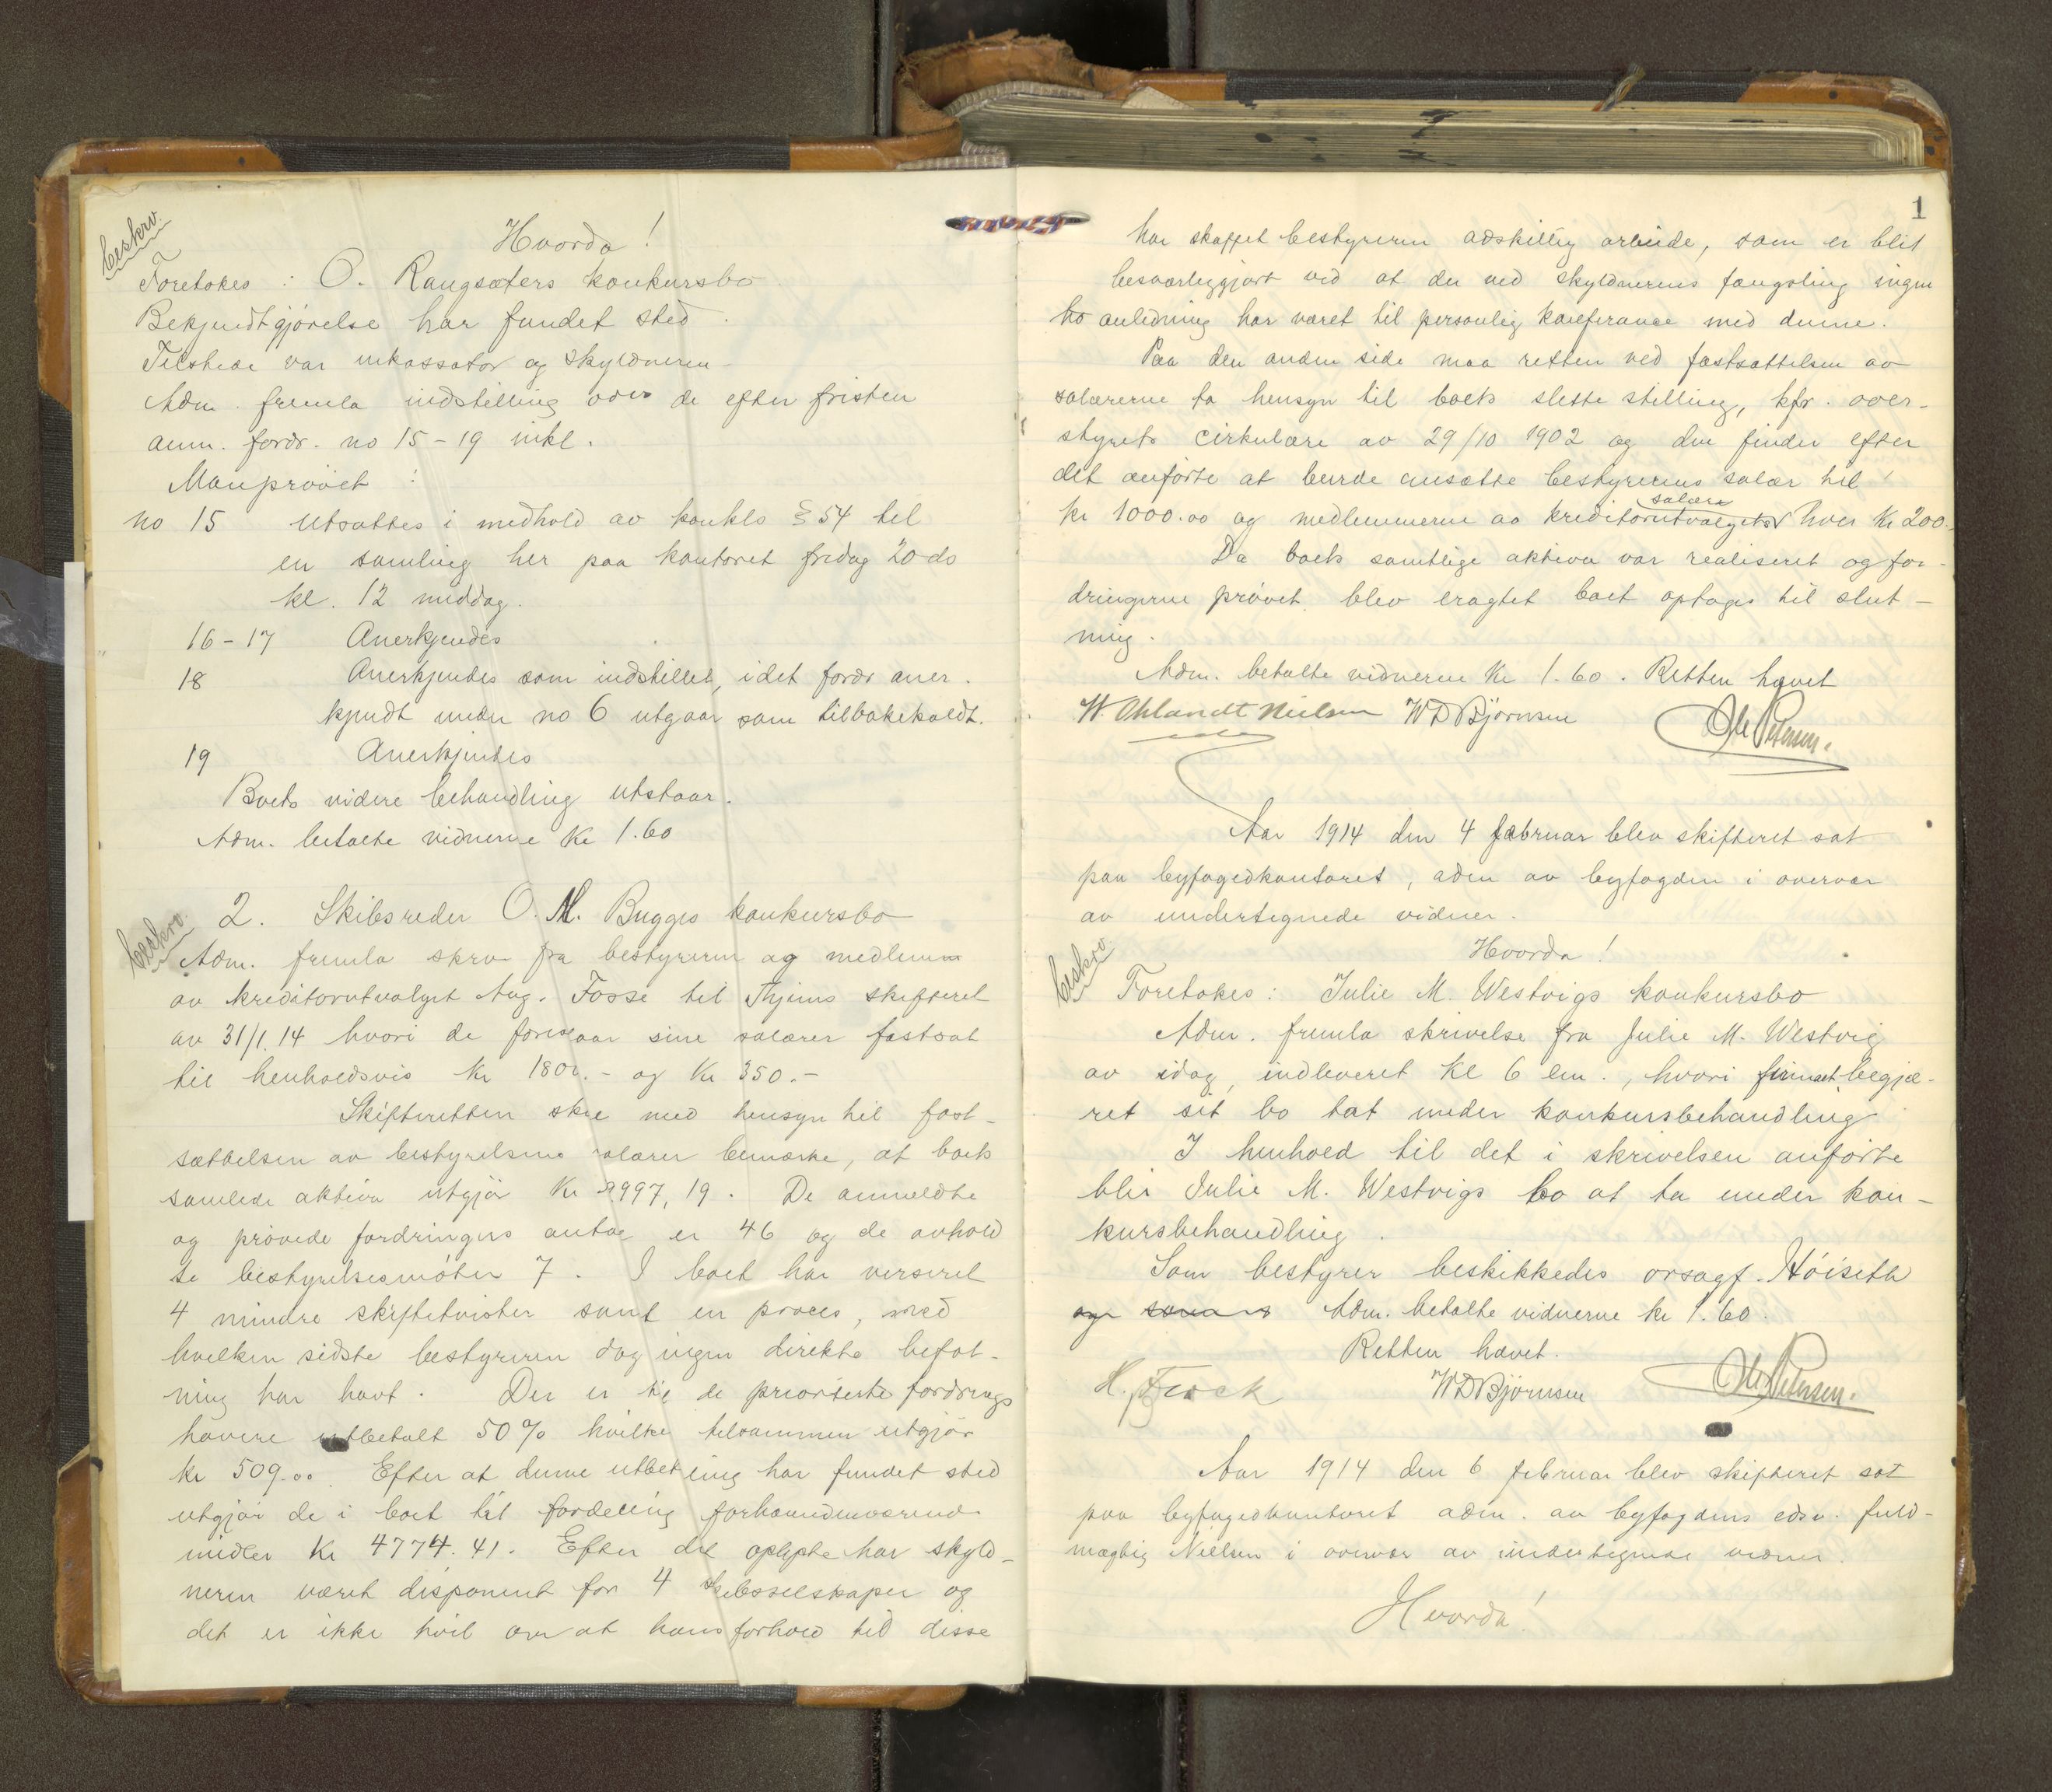 beskrv.
Hvorda!
Foretokes: O. Raugsæters konkursbo
Bekjendtgjörelse har fundet sted.
Tilstede var inkassator og skyldneren
Adm. fremla indstilling over de efter fristen
anm. fordr. no 15-19 inkl.
Man prövet:
no 15 Utsattes i medhold av konkls § 54 til
en samling her paa kontoret fredag 20 ds
kl. 12 middag.
16-17 Anerkjendes
18 Anerkjendes som indstillet, idet fordr aner-
kjendt under no 6 utgaar som tilbakekaldt.
19 Anerkjendes
Boets videre behandling utstaar.
Adm. betalte vidnerne Kr 1.60
beskrv
2. Skibsreder O. M. Bugges konkursbo
Adm. fremla skrv fra bestyreren og medlem
av kreditorutvalget Aug. Fosse til Thjems skifteret
av 31/1.14 hvori de foreslaar sine salærer fastsat
til henholdsvis kr 1800.- og Kr 350.-
Skifteretten skal med hensyn til fast-
sættelsen av bestyrelsens salærer bemærke, at boets
samlede aktiva utgjör Kr 9997,19. De anmeldte
og prövede fordringers antal er 46 og de avhold
te bestyrelsesmöter 7. I boet har verseret
4 mindre skiftetvister samt en proces, med
hvilken sidste bestyreren dog ingen direkte befat-
ning har havt. Der er til de prioriterte fordrings
havere utbetalt 50% hvilke tilsammen utgjör
kr 509.00. Efter at denne utbetaling har fundet sted
utgjör de i boet til fordeling forhaandenværende
midler Kr 4774.41. Efter det oplyste har skyld-
neren været disponent for 4 skibsselskaper og
det er ikke tvil om at hans forhold til disse
1
har skaffet bestyreren adskillig arbeide, som er blit
besværliggjort ved at der ved skyldnerens fængsling ingen
ho anledning har været til personlig konferanse med denne.
Paa den anden side maa retten ved fastsættelsen av
salærerne ta hensyn til boets slette stilling, kfr. over-
styrets cirkulære av 29/10 1902 og den finder efter
det anförte at burde ansætte bestyrerens salær til
kr 1000.00 og medlemmerne av kreditorutvalgets salærer hver Kr 200.-
Da boets samtlige aktiva var realiseret og for-
dringerne prövet blev eragtet boet optages til slut-
ning.
Adm. betalte vidnerne Kr 1.60. Retten hævet
W. Ohlandt Nielsen W D Björnsen Ole Petersen.
Aar 1914 den 4 februar blev skifteret sat
paa byfogedkontoret, adm av byfogden i overvær
av undertegnede vidner.
Hvorda!
beskrv
Foretokes: Julie M. Westvigs konkursbo
Adm. fremla skrivelse fra Julie M. Westvig
av idag, indleveret kl 6 em., hvori firmaet begjæ-
ret sit bo tat under konkursbehandling
I henhold til det i skrivelsen anförte
blir Julie M. Westvigs bo at ta under kon-
kursbehandling.
Som bestyrer beskikkedes orsagf. Höiseth
og som Adm. betalte vidnerne kr 1.60.
Retten hævet.
W D Björnsen Ole Petersen.
Aar 1914 den 6 februar blev skifteret sat
paa byfogedkontoret adm. av byfogdens edsv. fuld-
mægtig Nielsen i overvær av undertegnede vidner.
Hvorda!